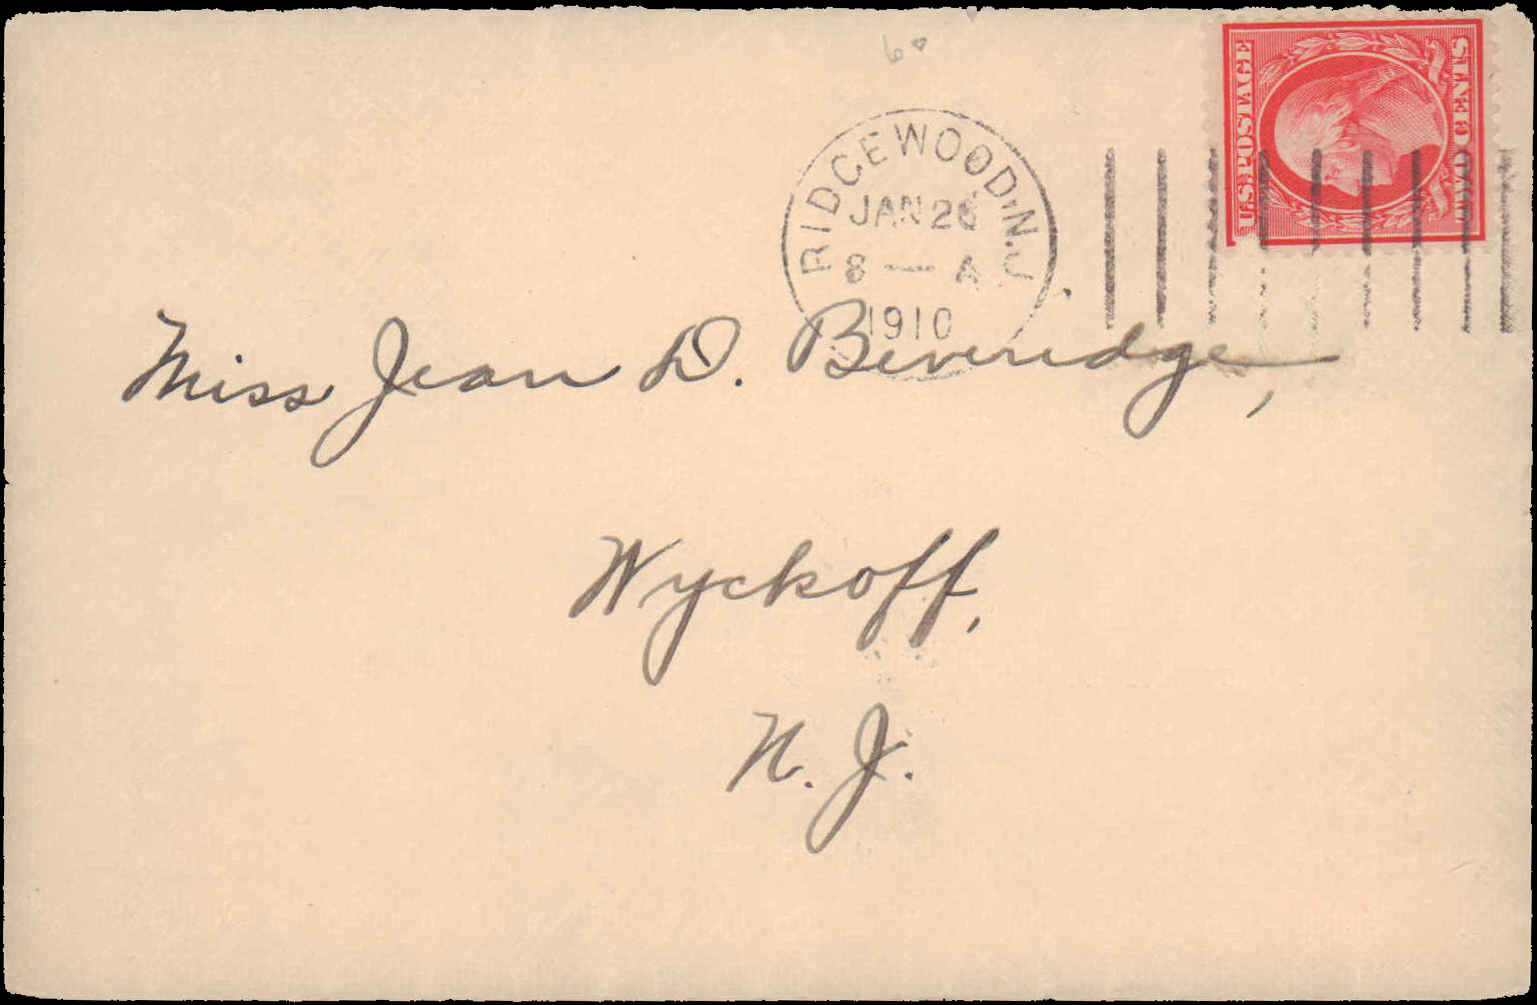 6
U.S. POSTAGE
TWO CENTS
RIDGEWOOD, N.J.
JAN 26
8 — A
1910
Miss Jean D. Beveridge,
Wyckoff,
N. J.